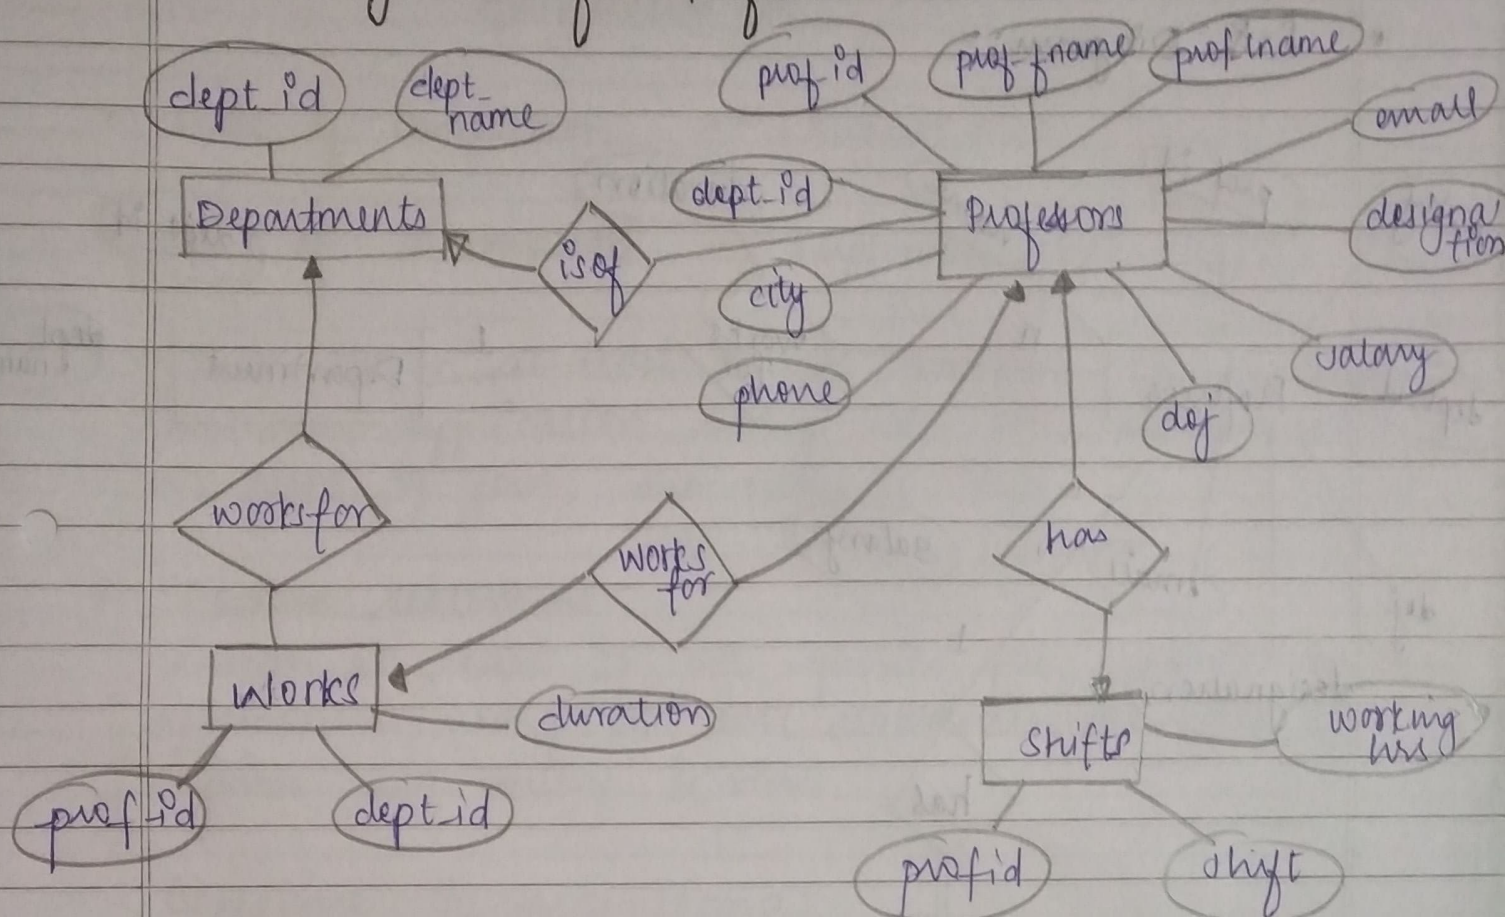 dept_id
dept_
name
prof_id
prof_fname
prof_lname
email
Departments
isof
dept_id
Professors
designa
tion
city
phone
doj
salary
worksfor
works
for
has
Works
duration
Shifts
working
hrs
prof_id
dept_id
profid
shift